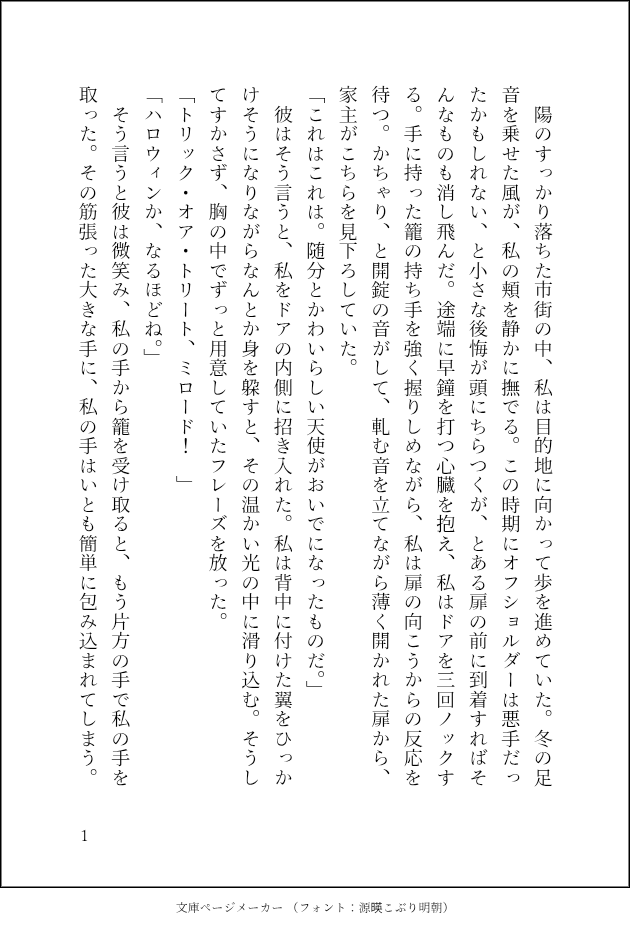 陽のすっかり落ちた市街の中、私は目的地に向かって歩を進めていた。冬の足
音を乗せた風が、私の頬を静かに撫でる。この時期にオフショルダーは悪手だっ
たかもしれない、と小さな後悔が頭にちらつくが、とある扉の前に到着すればそ
んなものも消し飛んだ。途端に早鐘を打つ心臓を抱え、私はドアを三回ノックす
る。手に持った籠の持ち手を強く握りしめながら、私は扉の向こうからの反応を
待つ。かちゃり、と開錠の音がして、軋む音を立てながら薄く開かれた扉から、
家主がこちらを見下ろしていた。
「これはこれは。随分とかわいらしい天使がおいでになったものだ。」
　彼はそう言うと、私をドアの内側に招き入れた。私は背中に付けた翼をひっか
けそうになりながらなんとか身を躱すと、その温かい光の中に滑り込む。そうし
てすかさず、胸の中でずっと用意していたフレーズを放った。
「トリック・オア・トリート、ミロード！　」
「ハロウィンか、なるほどね。」
　そう言うと彼は微笑み、私の手から籠を受け取ると、もう片方の手で私の手を
取った。その筋張った大きな手に、私の手はいとも簡単に包み込まれてしまう。
1
文庫ページメーカー（フォント：源暎こぶり明朝）